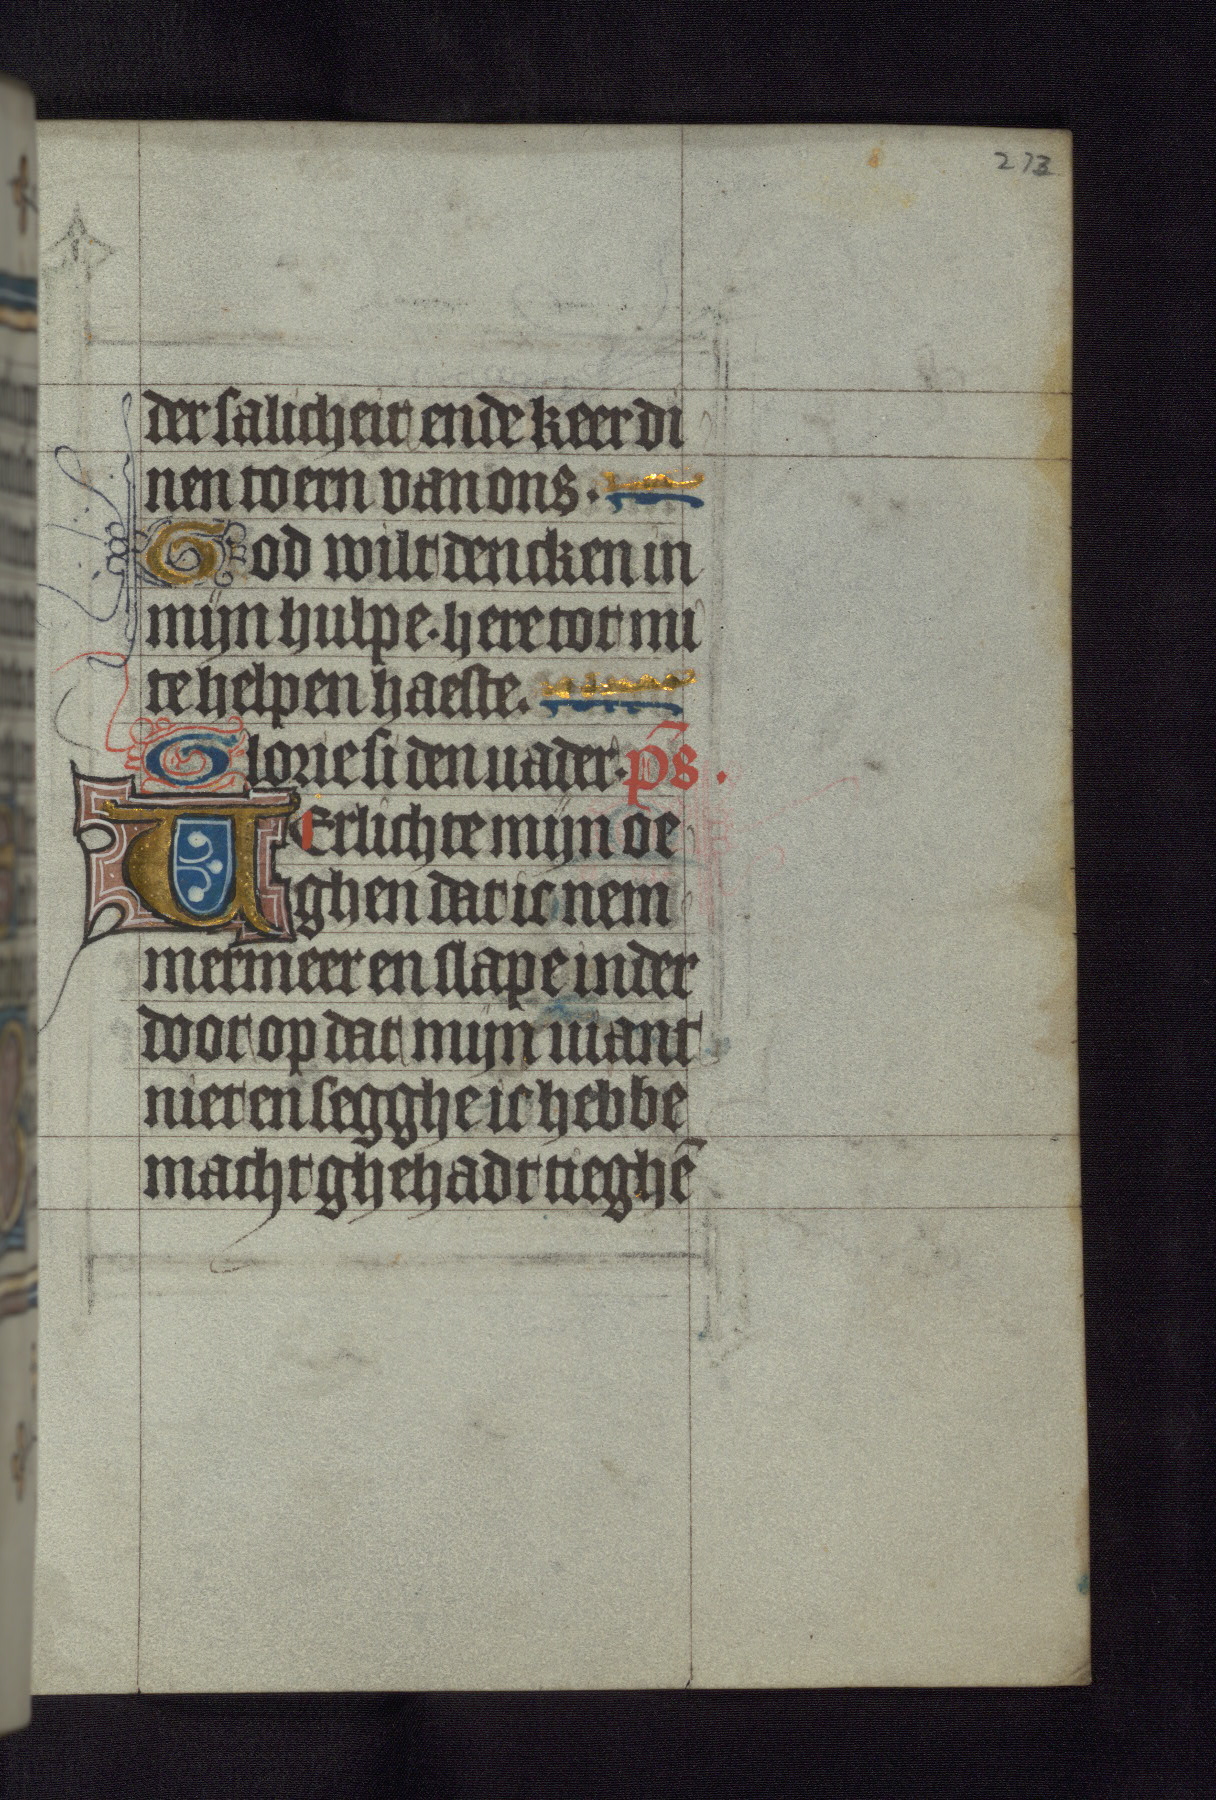 273
der salicheit ende keer di
nen toern van ons.
God wilt dencken in
mijn hulpe. here tot mi
te helpen haeste.
Glorie si den uader. p̄s.
UErlichte mijn oe
ghen dat ic nem
mermeer en slape in der
doot op dat mijn uiant
niet en segghe ic hebbe
macht ghehadt tieghē